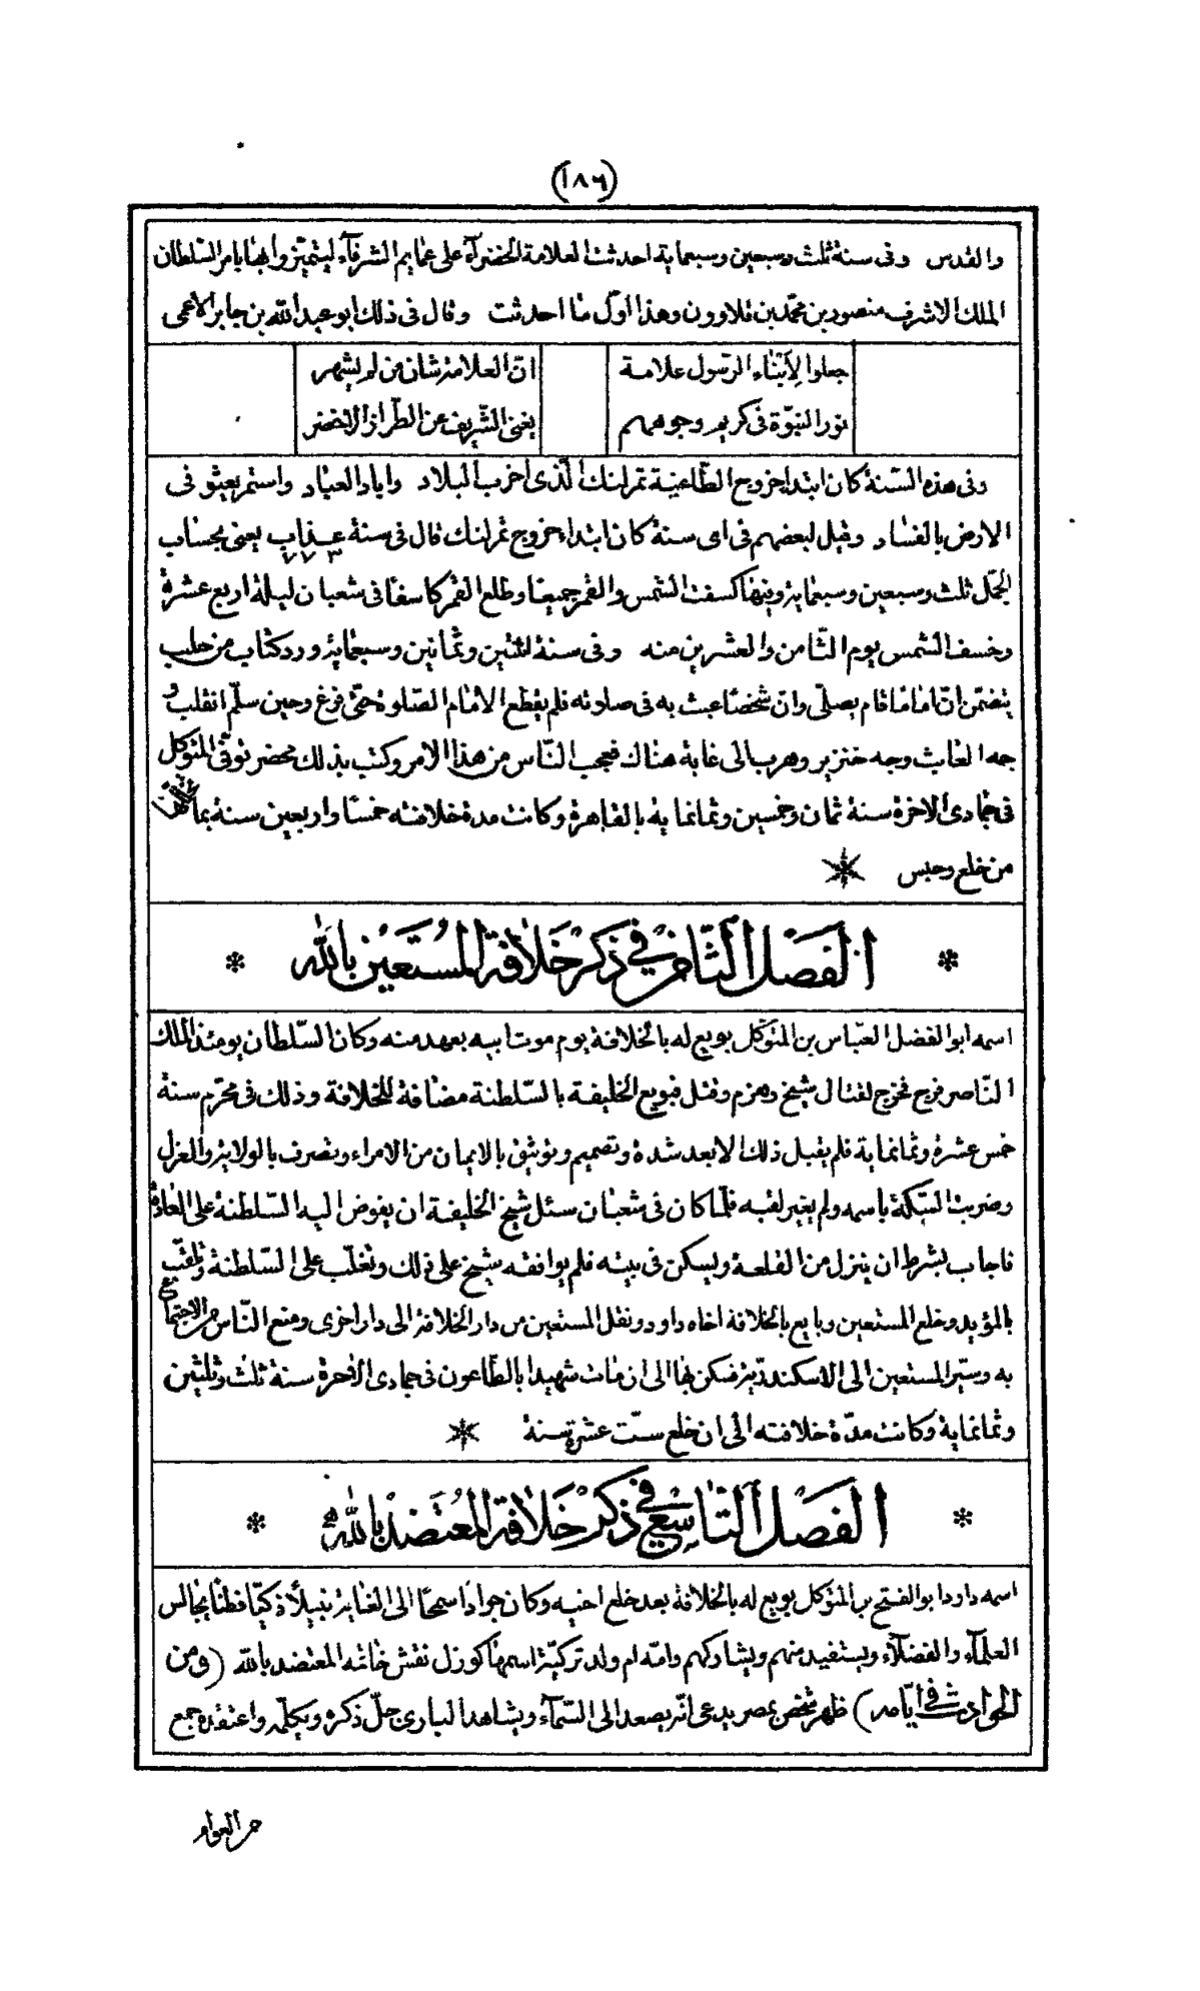 (١٨٦)
والقدس وفى سنة ثلث وسبعين وسبعماية احدثت العلامة الخضرآء على عمايم الشرفآء ليتميّزوا بها بامر السّلطان
الملك الاشرف منصور بن محمّد بن قلاوون وهذا اوّل ما احدثت وقال فى ذلك ابو عبد اللّه بن جابر الاعمى
جعلوا لِأبْناء الرّسول علامة انّ العلامة شان من لم يشهر
نور النبوّة فى كريم وجوههم يغنى الشّريف عن الطّراز الاخضر
وفى هذه السّنة كان ابتداء خروج الطّاغية تمرلنك الّذى اخرب البلاد واباد العباد واستمر يعثو فى
الارض بالفساد وقيل لبعضهم فى اى سنة كان ابتداء خروج تمرلنك قال فى سنة عذاب يعنى بحساب
٧٧٣
الجمّل ثلث وسبعين وسبعماية وفيها كسفت الشمس والقمر جميعا وطلع القمر كاسفا فى شعبان ليلة اربع عشرة
وخسف الشمس يوم الثّامن والعشرين منه وفى سنة اثنتين وثمانين وسبعماية ورد كتاب من حلب
يتضمّن انّ اماما قام يصلّى وانّ شخصا عبث به فى صلوته فلم يقطع الامام الصّلوة حتّى فرغ وحين سلّم انقلب و
جه العابث وجه خنزير وهرب الى غابة هناك فعجب النّاس من هذا الامر وكتب بذلك محضر توفّى المتوكل
فى جمادى الاخرة سنة ثمان وخمسين وثمانماية بالقاهرة وكانت مدة خلافته خمسًا واربعين سنة بما
من خلع وحبس
الفصل الثّامن فى ذكر خلافة المستعين باللّه
اسمه ابو الفضل العبّاس بن المتوكّل بويع له بالخلافة يوم موت ابيه بعهد منه وكان السّلطان يومئذ الملك
النّاصر فرج فخرج لقتال شيخ دهزم وقتل فبويع الخليفة بالسّلطنة مضافة للخلافة وذلك فى محرّم سنة
خمس عشرة وثمانماية فلم يقبل ذلك الا بعد شدة وتصميم وتوثيق بالايمان من الامراء وتصرف بالولاية والعزل
وضربت السّكة باسمه ولم يغير لقبه فلمّا كان فى شعبان سئل شيخ الخليفة ان يفوض اليه السّلطنة على العادة
فاجاب بشرط ان ينزل من القلعة ويسكن فى بيته فلم يوافقه شيخ على ذلك وتغلّب على السّلطنة وتلقّب
بالمؤيد وخلع المستعين وبايع بالخلافة اخاه داود ونقل المستعين من دار الخلافة الى دار اخرى ومنع النّاس من الاجتماع
به وسيّر المستعين الى الاسكندريّة فسكن بها الى ان مات شهيدا بالطّاعون فى جمادى الاخرة سنة ثلث وثلثين
وثمانماية وكانت مدّة خلافته الى ان خلع ستّ عشرة سنة
الفصل التّاسع فى ذكر خلافة المعتضد باللّه
اسمه داود ابو الفتح بن المتوكل بويع له بالخلافة بعد خلع اخيه وكان جوادًا سمحًا الى الغاية نبيلًا ذكيّا فطنًا يجالس
العلمآء والفضلآء ويستفيد منهم ويشاركهم وامّه ام ولد تركيّة اسمها كوزل نقش خاتمه المعتضد باللّه (ومن
الحوادث فى ايّامه) ظهر شخص بمصر يدعى انّه يصعد الى السّمآء ويشاهد البارى جلّ ذكره ويكلّمه واعتقده جمع
من العوام